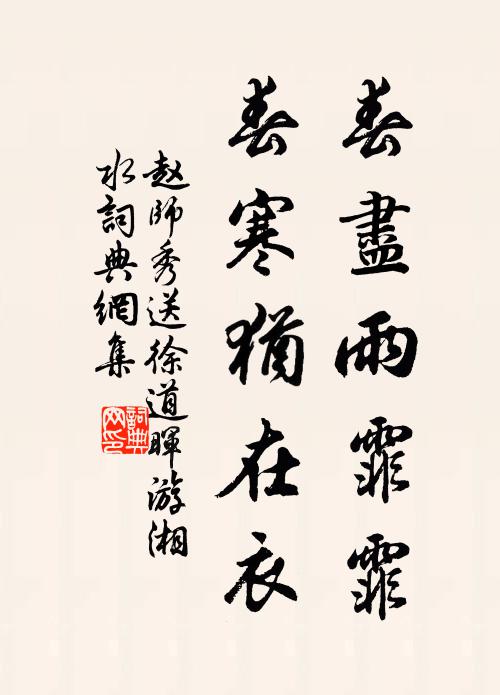 春盡雨霏霏
春寒猶在衣
赵師秀送徐道暉游湘
水詞典網集
詞典
网印